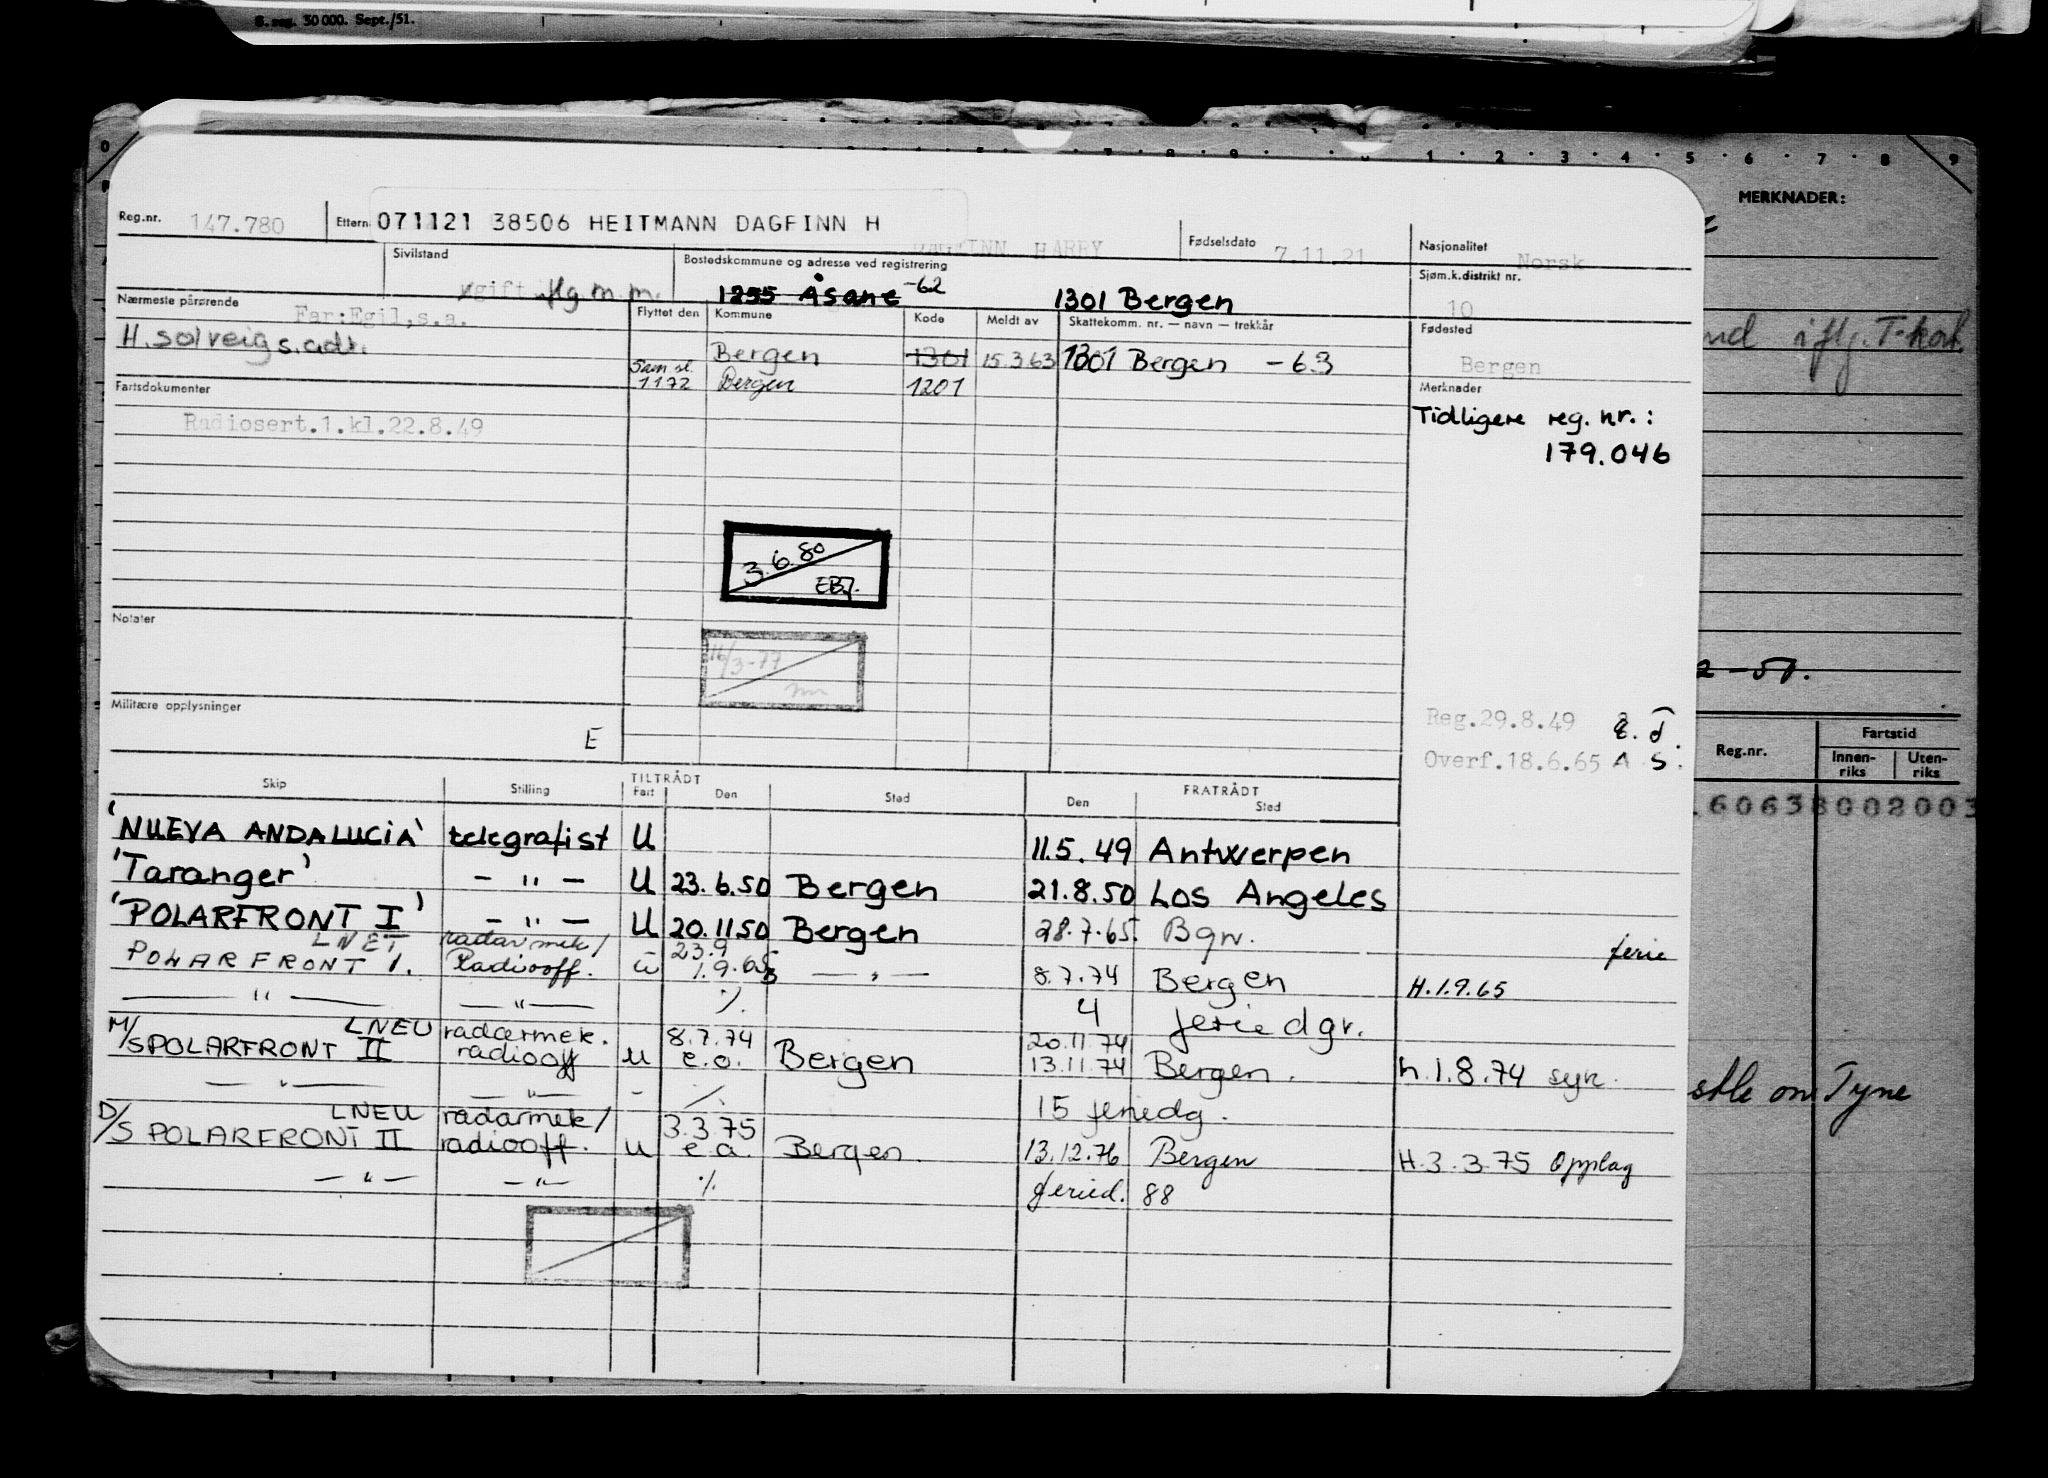 S. reg. 30 000. Sept./51.
0 1 2 3 4 5 6 7 8 9
MERKNADER:
Reg.nr. 147.780 Ettern 071121 38506 HEITMANN DAGFINN H
DAGFINN HARRY
Fødselsdato 7.11.21
Nasjonalitet Norsk
Sivilstand gift m.m.
Bostedskommune og adresse ved registrering
1255 Åsane -62 1301 Bergen
Sjøm.k.distrikt nr. 10
Nærmeste pårørende Far:Egil,s.a.
H. Solveig s.adr.
Flyttet den Kommune Kode Meldt av Skattekomm. nr. — navn — trekkår
Bergen 1301 15.3.63 1301 Bergen -63
Sam sl. 1172 Bergen 1201
Fødested Bergen
Fartsdokumenter
Radiosert.1.kl.22.8.49
Merknader
Tidligere reg. nr.:
179.046
3.6.80
EBJ.
16/3-77
Notater
Militære opplysninger
E
Reg.29.8.49
Overf.18.6.65 A S.
2-51.
Reg.nr. Fartstid
Innen-riks Uten-riks
160638002003
Skip Stilling TILTRÅDT Fart Den Sted FRATRÅDT Den Sted
'NUEVA ANDALUCIA' telegrafist U 11.5.49 Antwerpen
'Taranger' — " — U 23.6.50 Bergen 21.8.50 Los Angeles
'POLARFRONT I' — " — U 20.11.50 Bergen 28.7.65. Bgn. ferie
LNET radarmek/ 23.9
POLARFRONT I. Radiooff. U 1.9.65 — " — 8.7.74 Bergen H.1.9.65
— " — — " — ·/. 4 feriedgr.
M/S POLARFRONT II LNEU radarmek. 8.7.74 20.11.74
radiooff U e.o. Bergen 13.11.74 Bergen. h.1.8.74 syk.
— " — — " — - ·/. 15 feriedg.
D/S POLARFRONT II LNEU radarmek/ 3.3.75
radiooff. U e.a. Bergen. 13.12.76 Bergen H.3.3.75 Opplag
— " — — " — ·/. feried. 88
stle on Tyne